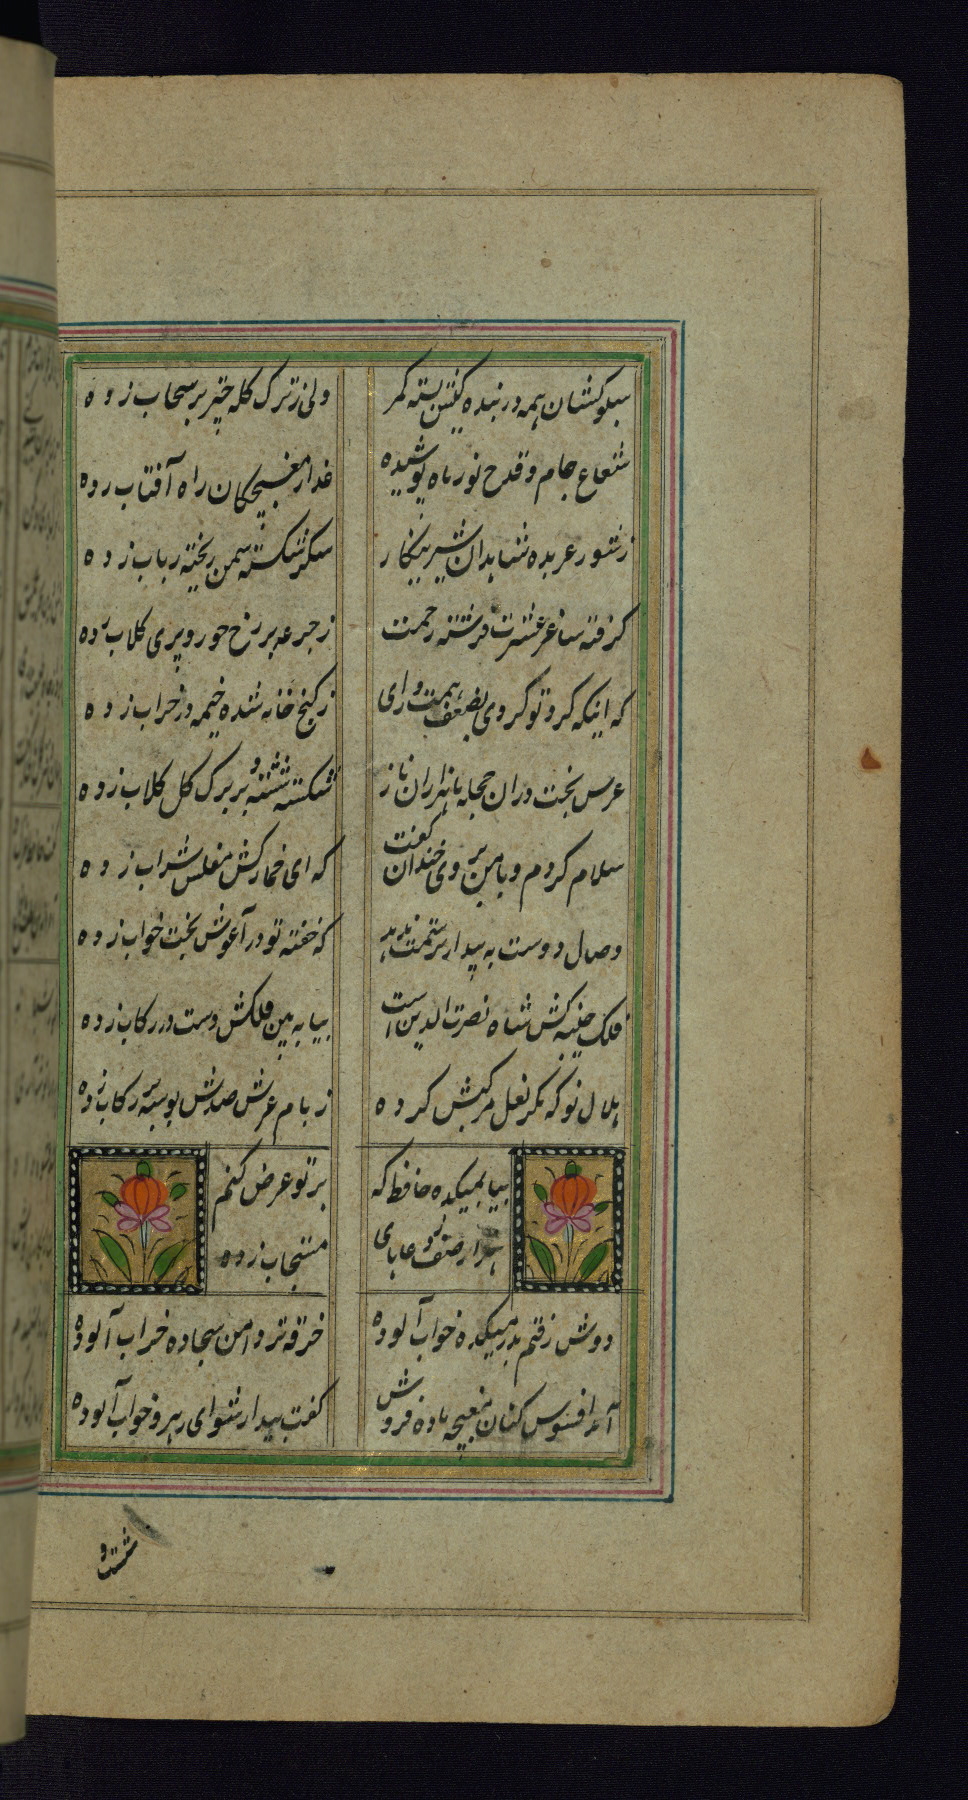 سبوکشان همه در بندکیش بسته کمر
ولی ز ترک کله چتر بر سحاب زده
شعاع جام و قدح نور ماه پوشیده
عذار مغبچکان راه آفتاب زده
ز شور عربده شاهدان شیرینکار
شکر شکسته سمن ریخته رباب زده
کرفته ساغر عشرت فرشته رحمت
ز جرعه بر رخ حور و پری کلاب زده
که اینکه کرد تو کردی بضعف همت و رای
ز کنج خانه شده خیمه در خراب زده
عروس بخت دران حجله با هزاران ناز
شکسته و بر برک کل کلاب زده
سلام کردم و با من بروی خندان کفت
که ای خمارکش مفلس شراب زده
وصال دوست به بیدار ستمت ندهد
که خفته تو در آغوش بخت خواب زده
فلک جنیبه کش شاه نصرت الدین است
بیا به بین فلکش دست در رکاب زده
هلال نو که مکر نعل مرکبش کرده
ز بام عرش صدش بوسه بر رکاب زده
بیا بمیکده حافظ که
بر تو عرض کنم
هزار صف ز دعاهای
مستجاب زده
دوش رفتم بدر میکده خواب آلوده
خرقه تر دامن سجاده خراب آلوده
آمد افسوس کنان مغبچه باده فروش
کفت بیدار شو ای رهرو خواب آلوده
شست و